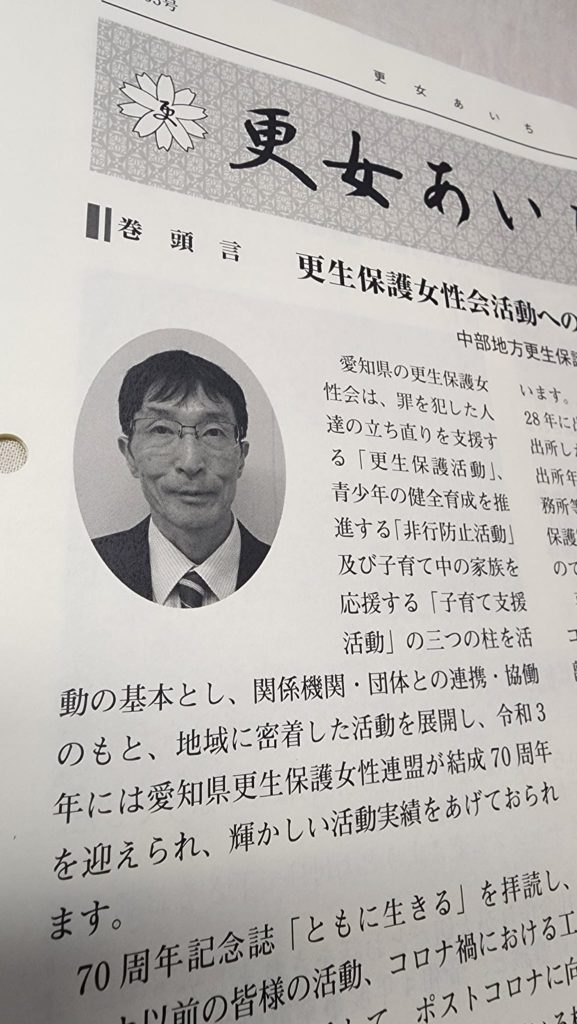 号
更女あいち
更
更女あい
巻頭言
更生保護女性会活動への
中部地方更生保
愛知県の更生保護女
性会は、罪を犯した人
達の立ち直りを支援す
る「更生保護活動」、
青少年の健全育成を推
進する「非行防止活動」
及び子育て中の家族を
応援する「子育て支援
活動」の三つの柱を活
動の基本とし、関係機関・団体との連携・協働
のもと、地域に密着した活動を展開し、令和3
年には愛知県更生保護女性連盟が結成70周年
を迎えられ、輝かしい活動実績をあげておられ
ます。
70周年記念誌「ともに生きる」を拝読し、
以前の皆様の活動、コロナ禍における工
て、ポストコロナに向
います。
28年に
出所し
出所年
務所等
保護
ので